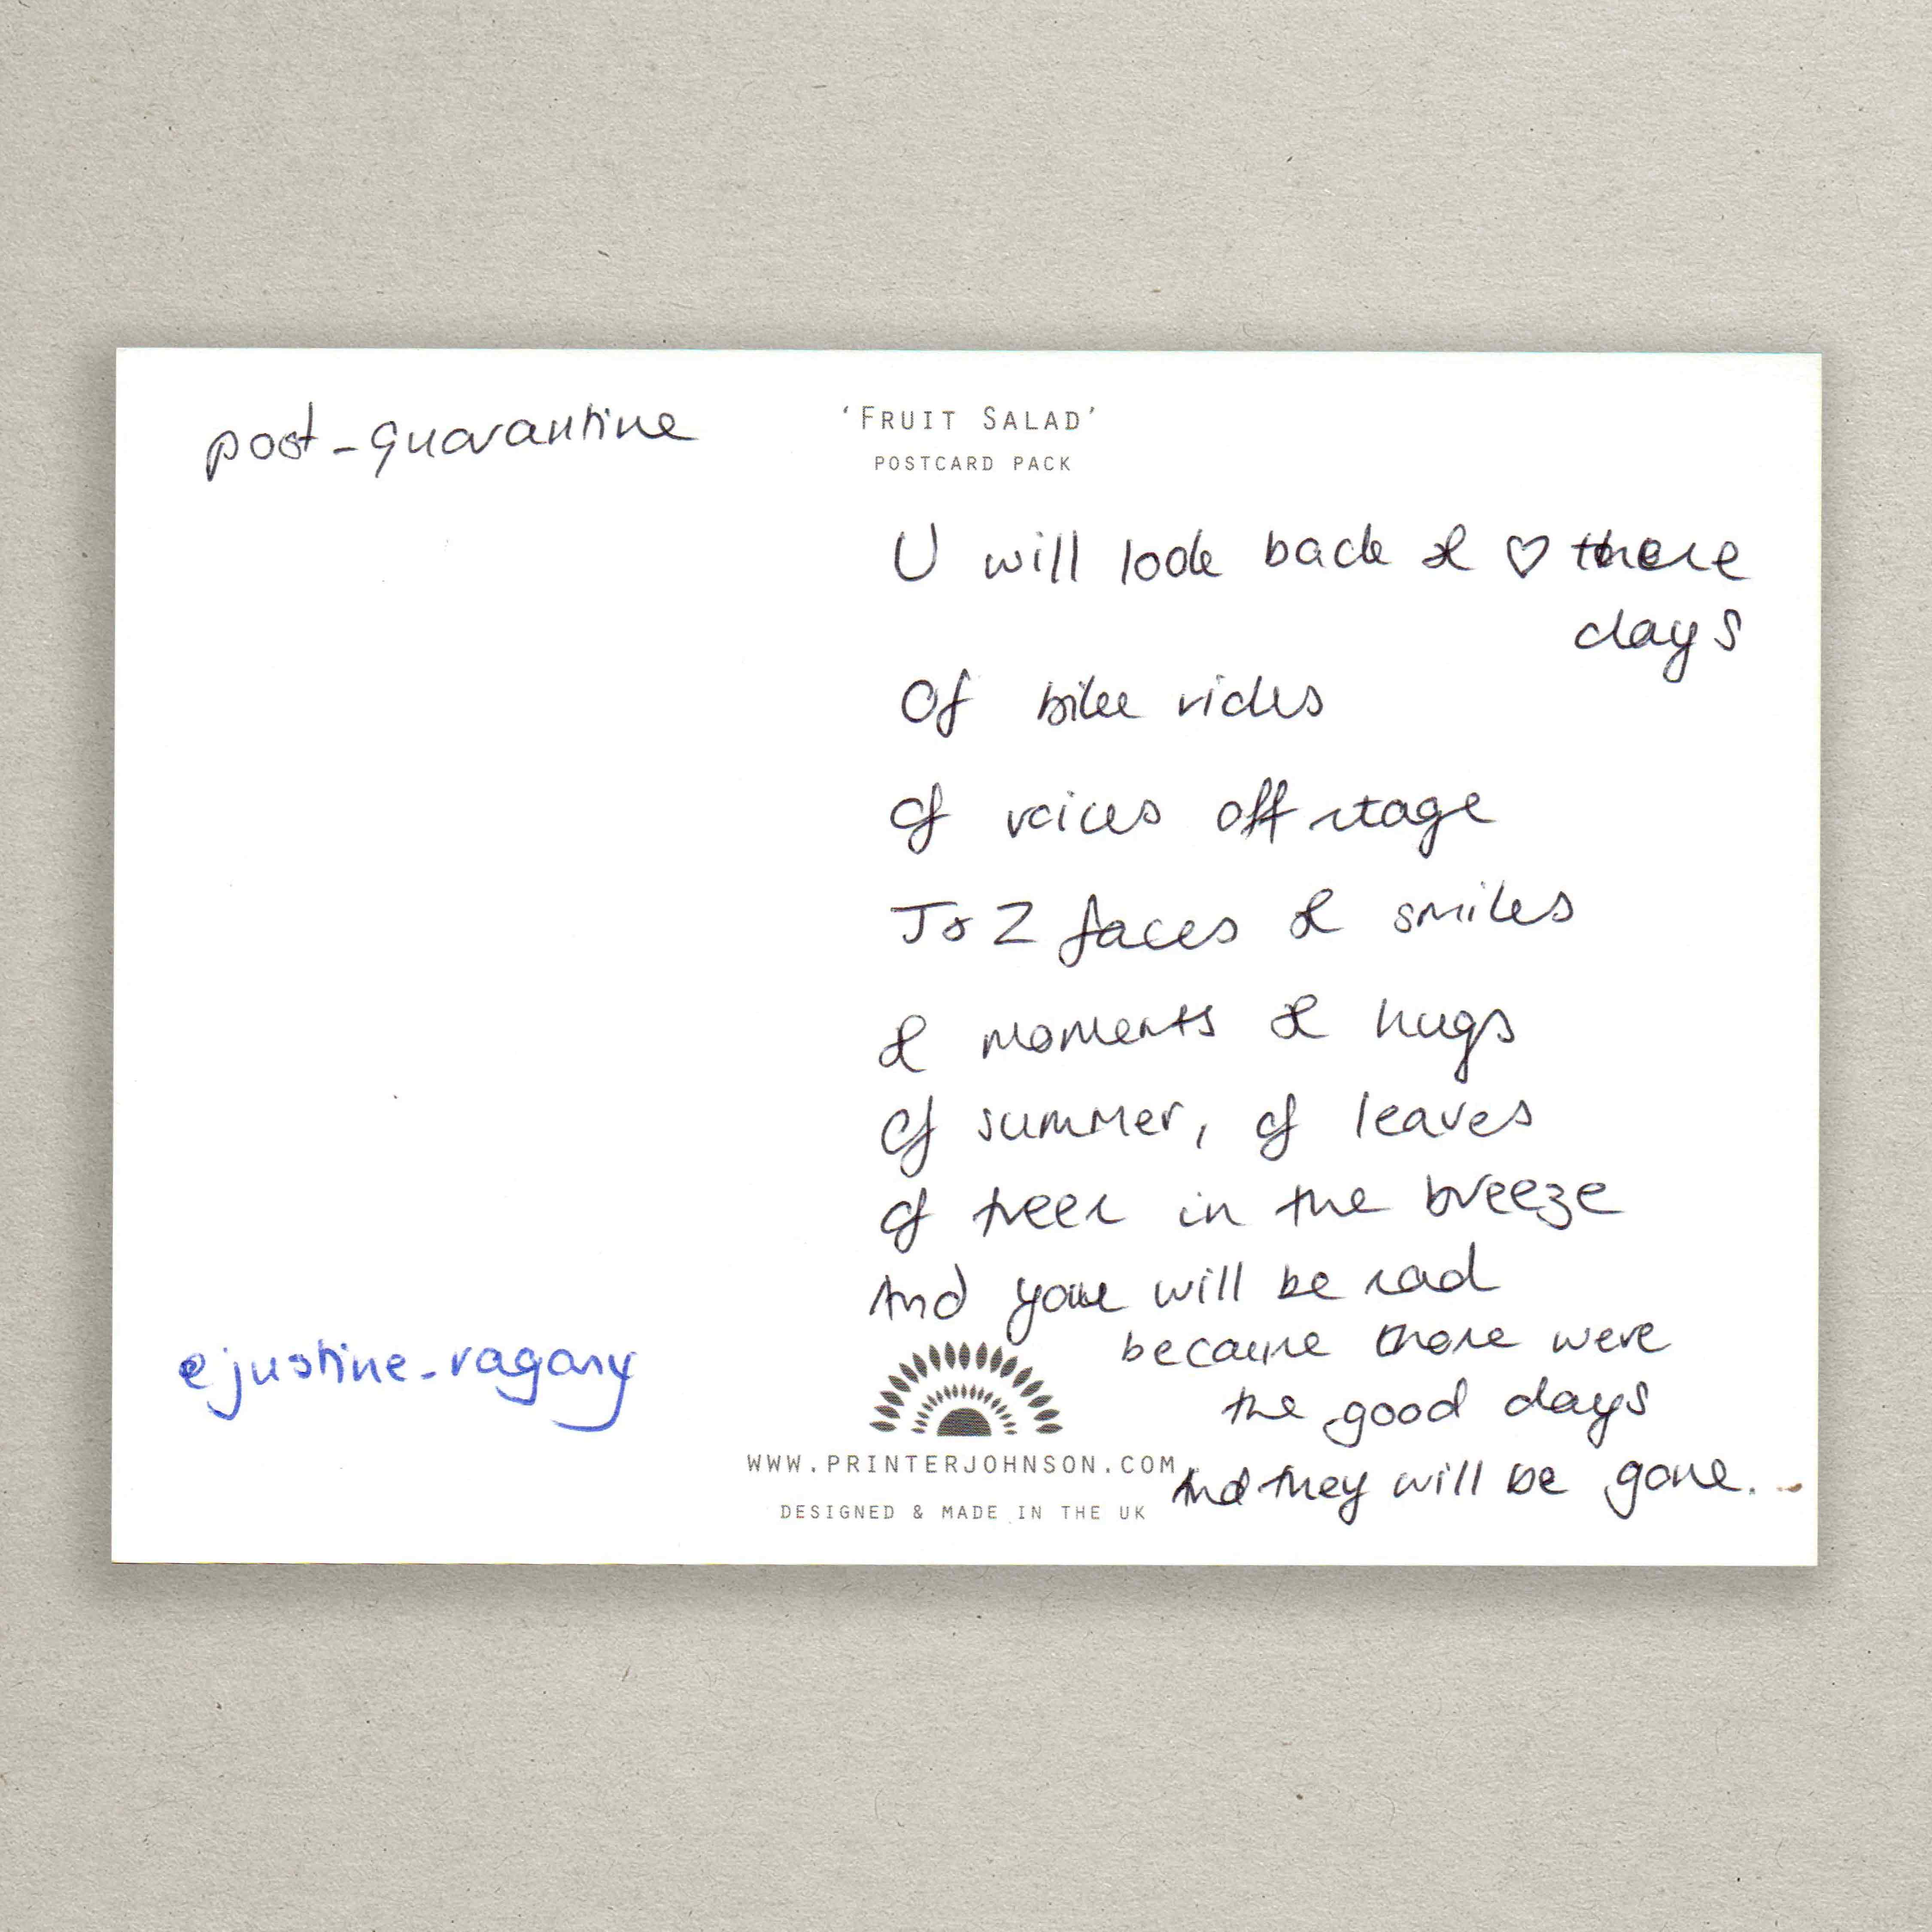 post-quarantine
'FRUIT SALAD'
POSTCARD PACK
U will look back & ♡ those
days
Of bike rides
Of voices off stage
To Z faces & smiles
& moments & hugs
Of summer, of leaves
Of trees in the breeze
And you will be sad
because those were
the good days
And they will be gone...
@justine_ragany
WWW.PRINTERJOHNSON.COM
DESIGNED & MADE IN THE UK